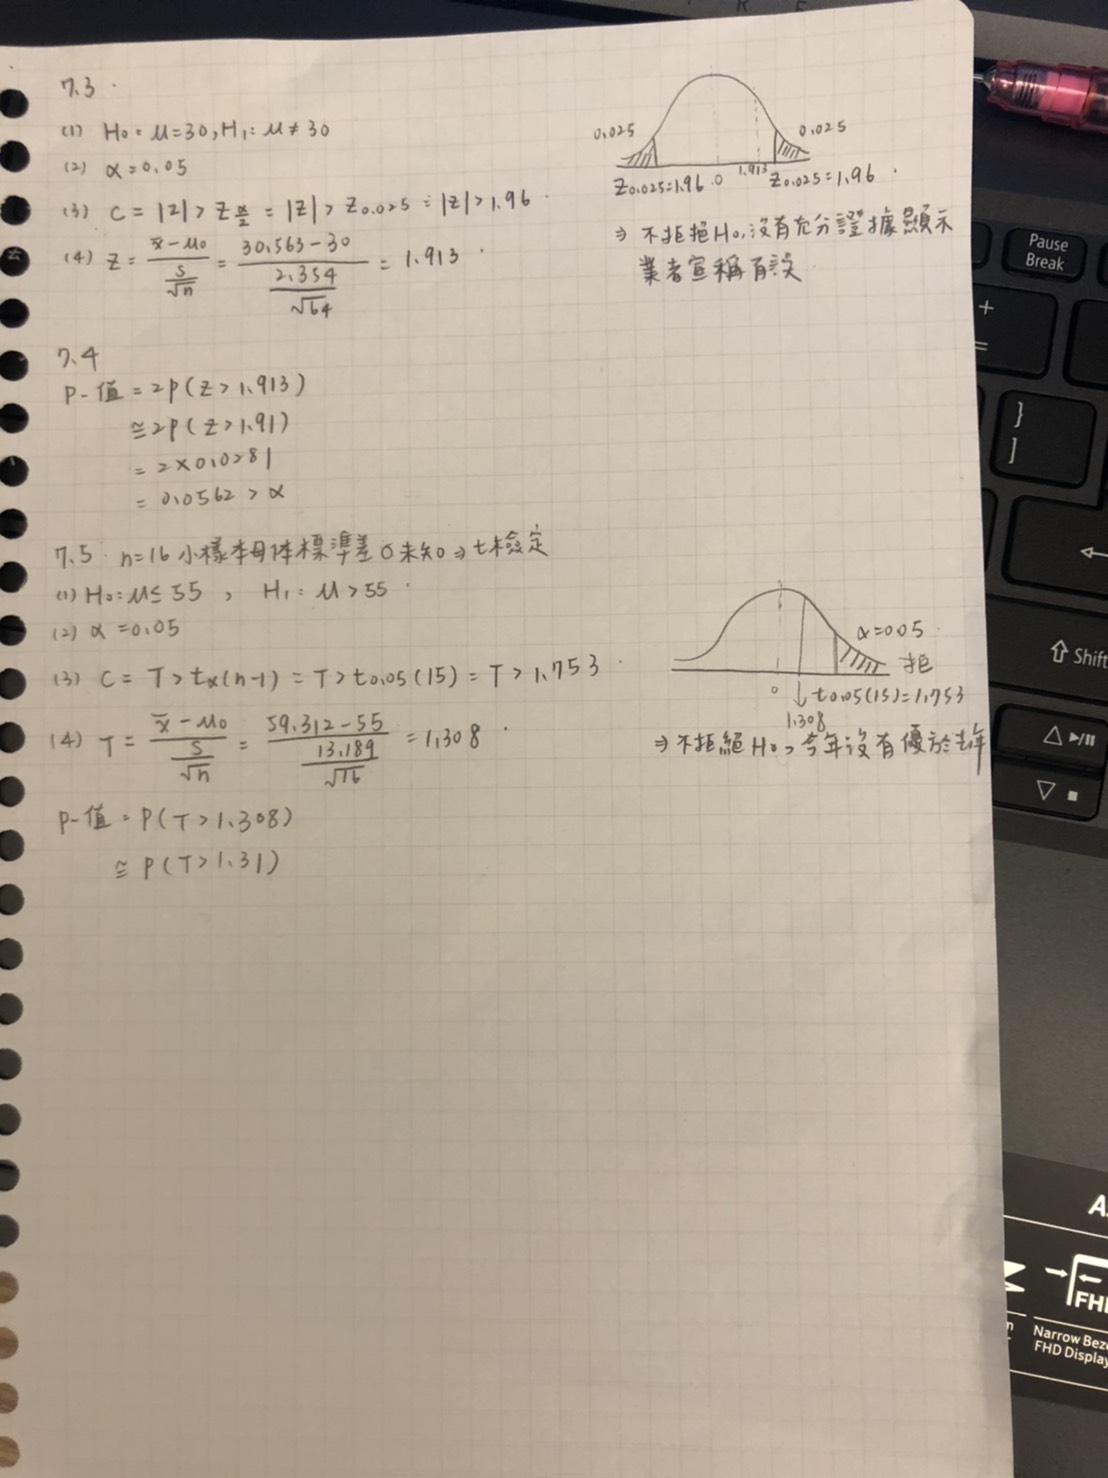 7.3
(1) H₀: μ=30, H₁: μ≠30
(2) α=0.05
(3) C = |Z| > Z_{α/2} = |Z| > Z₀.₀₂₅ = |Z| > 1.96
(4) Z = (x̄-μ₀)/(S/√n) = (30.563-30)/(2.354/√64) = 1.913
0.025
0.025
Z₀.₀₂₅=1.96
0
1.913
Z₀.₀₂₅=1.96
⇒ 不拒絕H₀,沒有充分證據顯示
業者宣稱有誤
7.4
P-值 = 2P(Z>1.913)
≅ 2P(Z>1.91)
= 2×0.0281
= 0.0562 > α
7.5 n=16 小樣本母体標準差σ未知⇒t檢定
(1) H₀: μ≤55, H₁: μ>55
(2) α=0.05
(3) C = T > tα(n-1) = T > t₀.₀₅(15) = T > 1.753
(4) T = (x̄-μ₀)/(S/√n) = (59.312-55)/(13.189/√16) = 1.308
α=0.05
拒
0
↓
t₀.₀₅(15)=1.753
1.308
⇒ 不拒絕H₀,今年沒有優於去年
P-值 = P(T>1.308)
≅ P(T>1.31)
Pause
Break
+
=
}
]
←
⇧ Shift
FHD
Narrow Beze
FHD Display